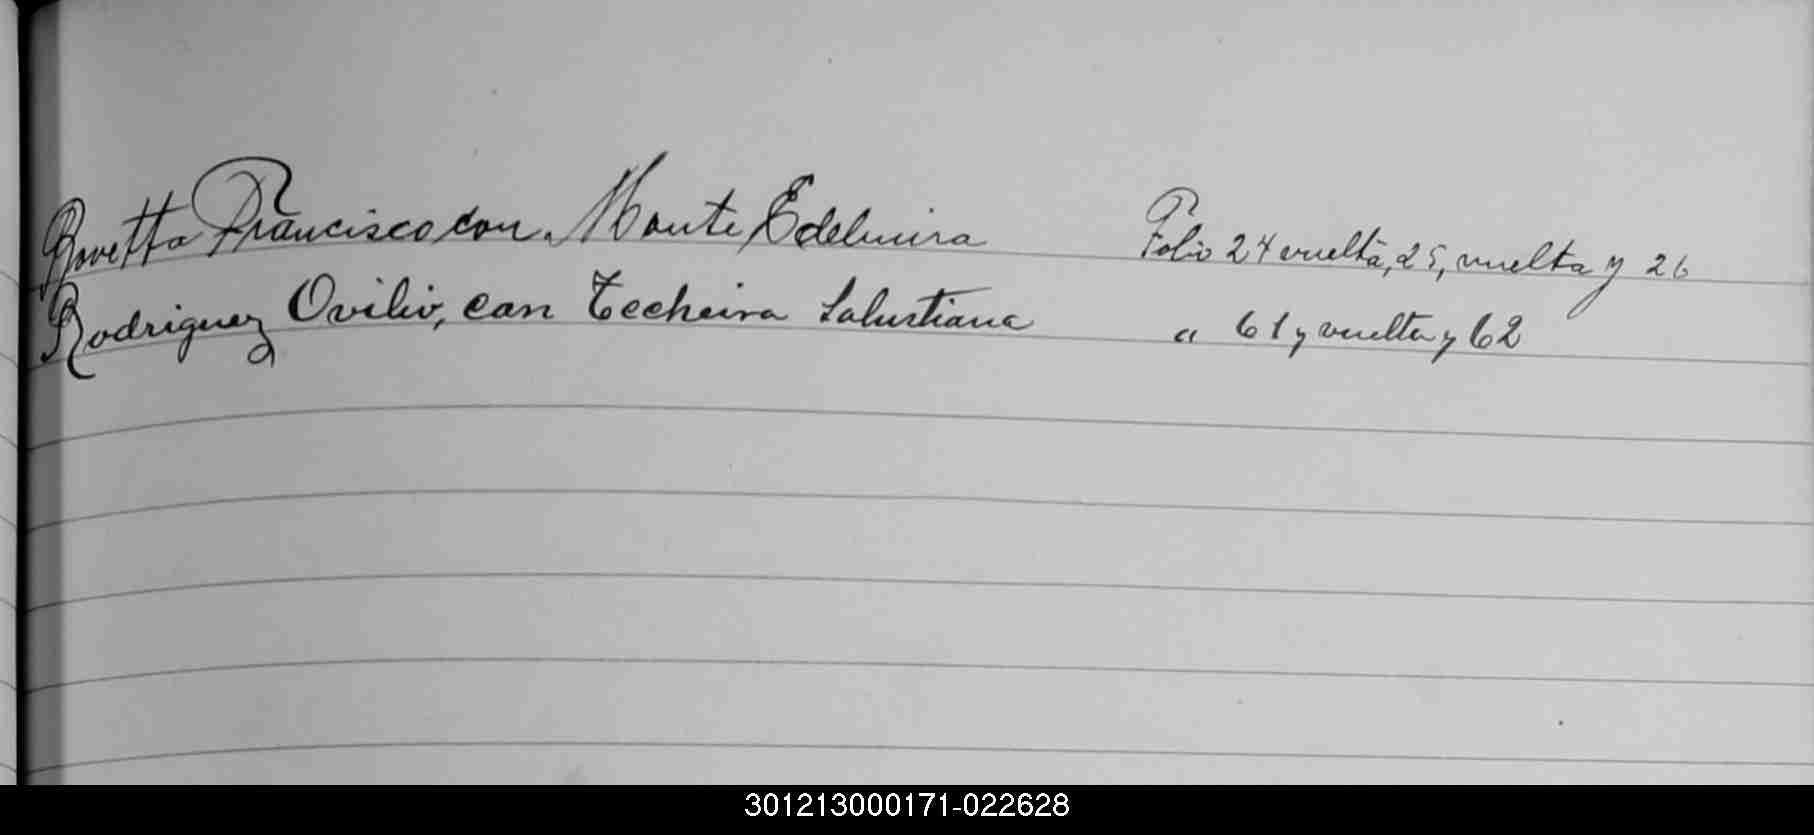 Rovetta Francisco con Monte Edelmira Folio 24 vuelta, 25, vuelta y 26
Rodriguez Ovilio, con Techeira Salustiana " 61 y vuelta y 62
301213000171-022628